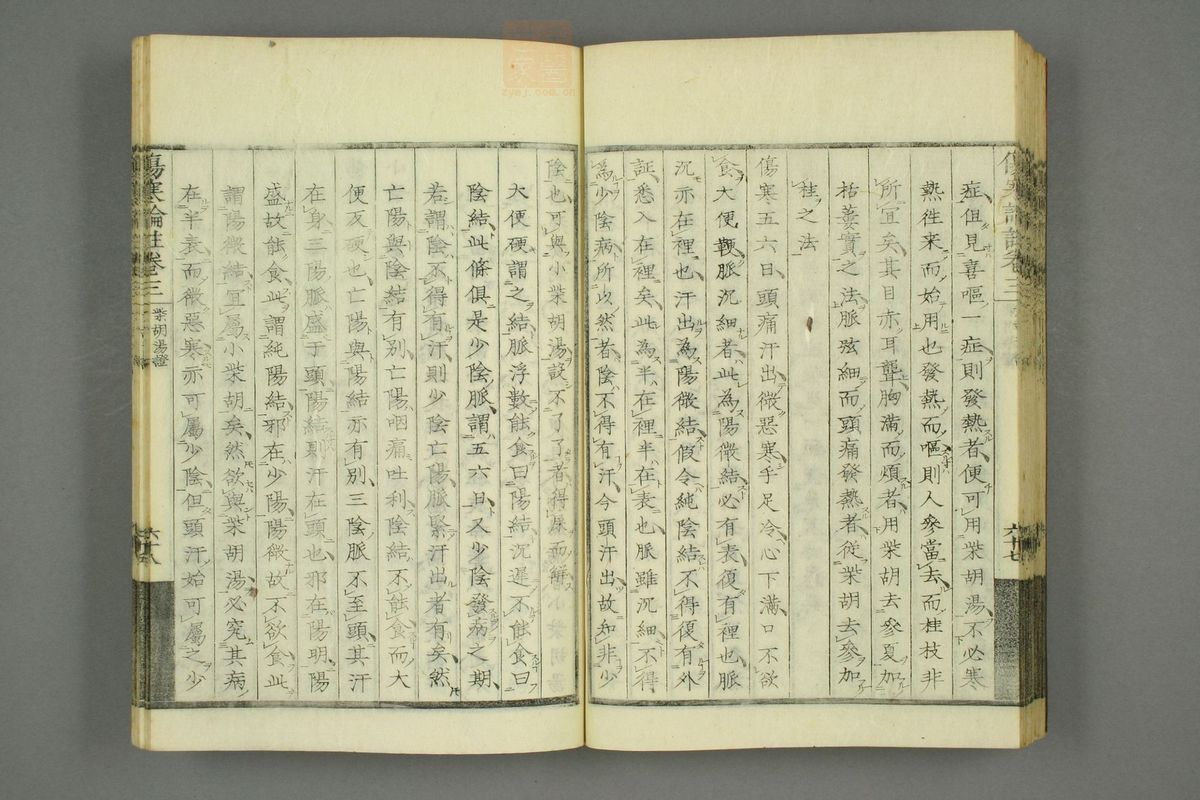 症但見喜嘔一症則發熱者便可用柴胡湯不必寒
熱徃来而始用也發熱而嘔則人參當去而桂枝非
所宜矣其目赤耳聾胸滿而煩者用柴胡去參夏加
栝蔞實之法脉弦細而頭痛發熱者從柴胡去參加
桂之法
傷寒五六日頭痛汗出微惡寒手足冷心下滿口不欲
食大便鞕脈沉細者此為陽微結必有表復有裡也脈
沉亦在裡也汗出為陽微結假令純陰結不得復有外
証悉入在裡矣此為半在裡半在表也脈雖沉細不得
為少陰病所以然者陰不得有汗今頭汗出故知非少
六十七
陰也可與小柴胡湯設不了了者得屎而解
大便硬謂之結脈浮數能食曰陽結沉遲不能食曰
陰結此條俱是少陰脈謂五六日又少陰發病之期
若謂陰不得有汗則少陰亡陽脈緊汗出者有矣然
亡陽與陰結有別亡陽咽痛吐利陰結不能食而大
便反硬也亡陽與陽結亦有別三陰脈不至頭其汗
在身三陽脈盛于頭陽結則汗在頭也邪在陽明陽
盛故能食此謂純陽結邪在少陽陽微故不欲食此
謂陽微結宜屬小柴胡矣然欲與柴胡湯必究其病
在半表而微惡寒亦可屬少陰但頭汗始可屬之少
傷寒論註卷三
柴胡湯證
六十八